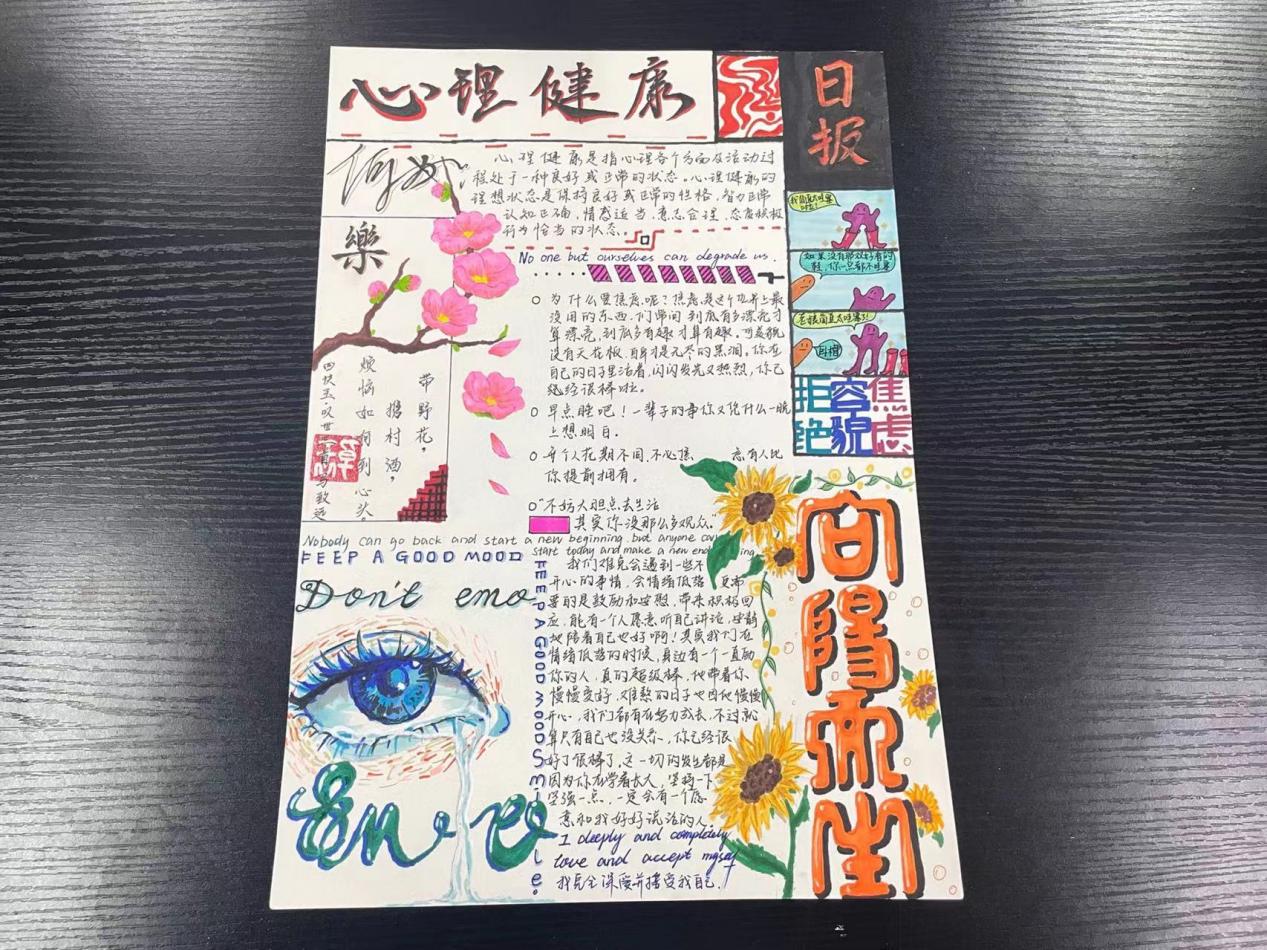 心理健康
日报
何妨
樂
心理健康是指心理各个方面及活动过
程处于一种良好或正常的状态。心理健康的
理想状态是保持良好或正常的性格、智力正常
认知正确,情感适当,意志合理,态度积极
行为恰当的状态。
No one but ourselves can degrade us.
为什么要焦虑呢?焦虑是这个世界上最
没用的东西,们常问到底有多漂亮才
算漂亮,到底多有趣才算有趣。可是貌
没有天花板,自身才是无尽的黑洞。你在
自己的日子里活着,闪闪发光又热烈,你已
经很棒啦。
早点睡吧!一辈子的事你又凭什么一晚
上想明白。
每个人花期不同,不必焦 虑有人比
你提前拥有。
“不妨大胆点去生活
其实你没那么多观众。”
带野花,
携村酒,
烦恼如何到心头。
四块玉·叹世
马致远
如果没有那双好看的
鞋,你一点都不哇塞
拒绝
容貌
焦虑
Nobody can go back and start a new beginning, but anyone can
start today and make a new ending
FEEP A GOOD MOOD
Don't emo
FEEP A GOOD MOOD Smile.
我们难免会遇到一些不
开心的事情,会情绪低落 更需
要的是鼓励和安慰,带来积极回
应,能有一个人愿意听自己讲话,安静
地陪着自己也好啊!其实我们在
情绪低落的时候,身边有一个一直励
你的人,真的超级棒,他带着你
慢慢变好,难熬的日子也因他慢慢
开心,我们都有在努力成长,不过就
算只有自己也没关系,你已经很
好了很棒了,这一切的发生都是
因为你在学着长大,坚持一下
坚强一点,一定会有一个愿
意和我好好说话的人。
I deeply and completely
love and accept myself
我完全深爱并接受我自己.
向陽而生